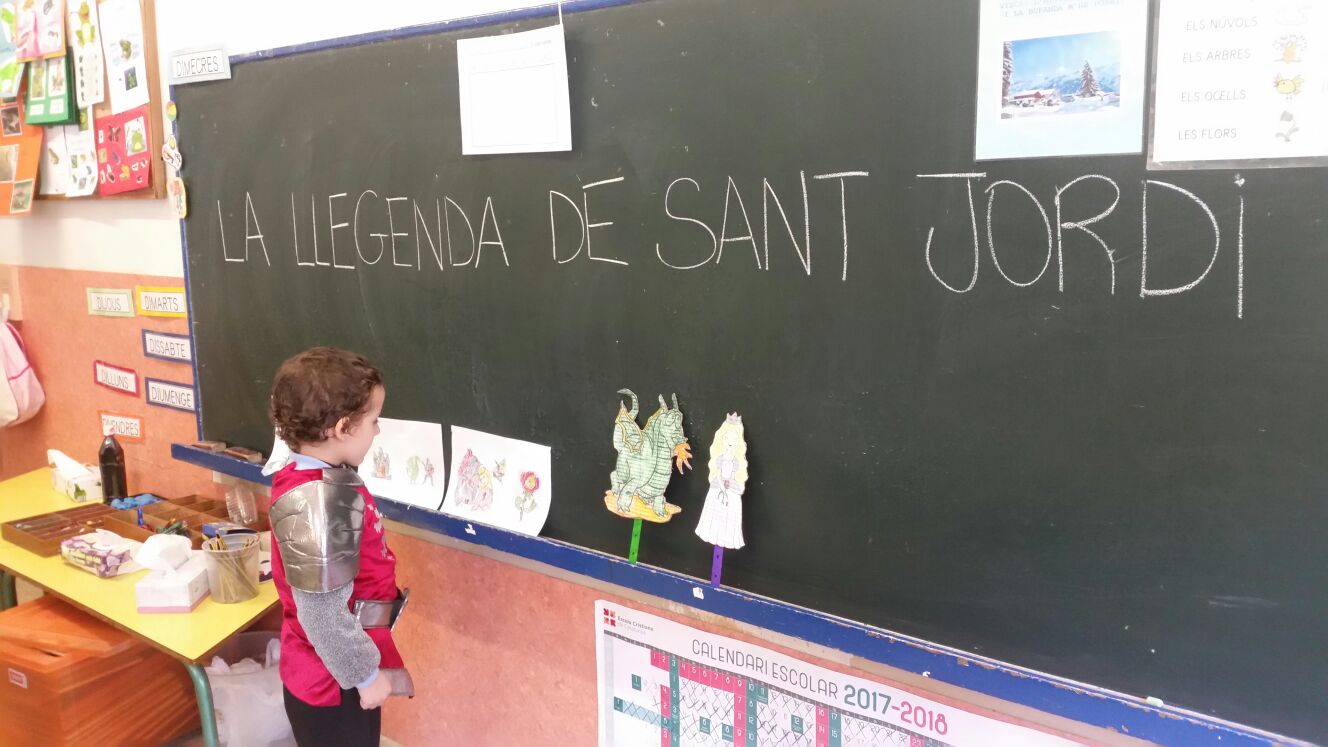 DIMECRES
E LA BUFANDA
ELS NÚVOLS
ELS ARBRES
ELS OCELLS
LES FLORS
LA LLEGENDA DE SANT JORDI
DIJOUS
DIMARTS
DISSABTE
DILLUNS
DIUMENGE
DIVENDRES
Escola Cristiana
de Catalunya
CALENDARI ESCOLAR 2017-2018